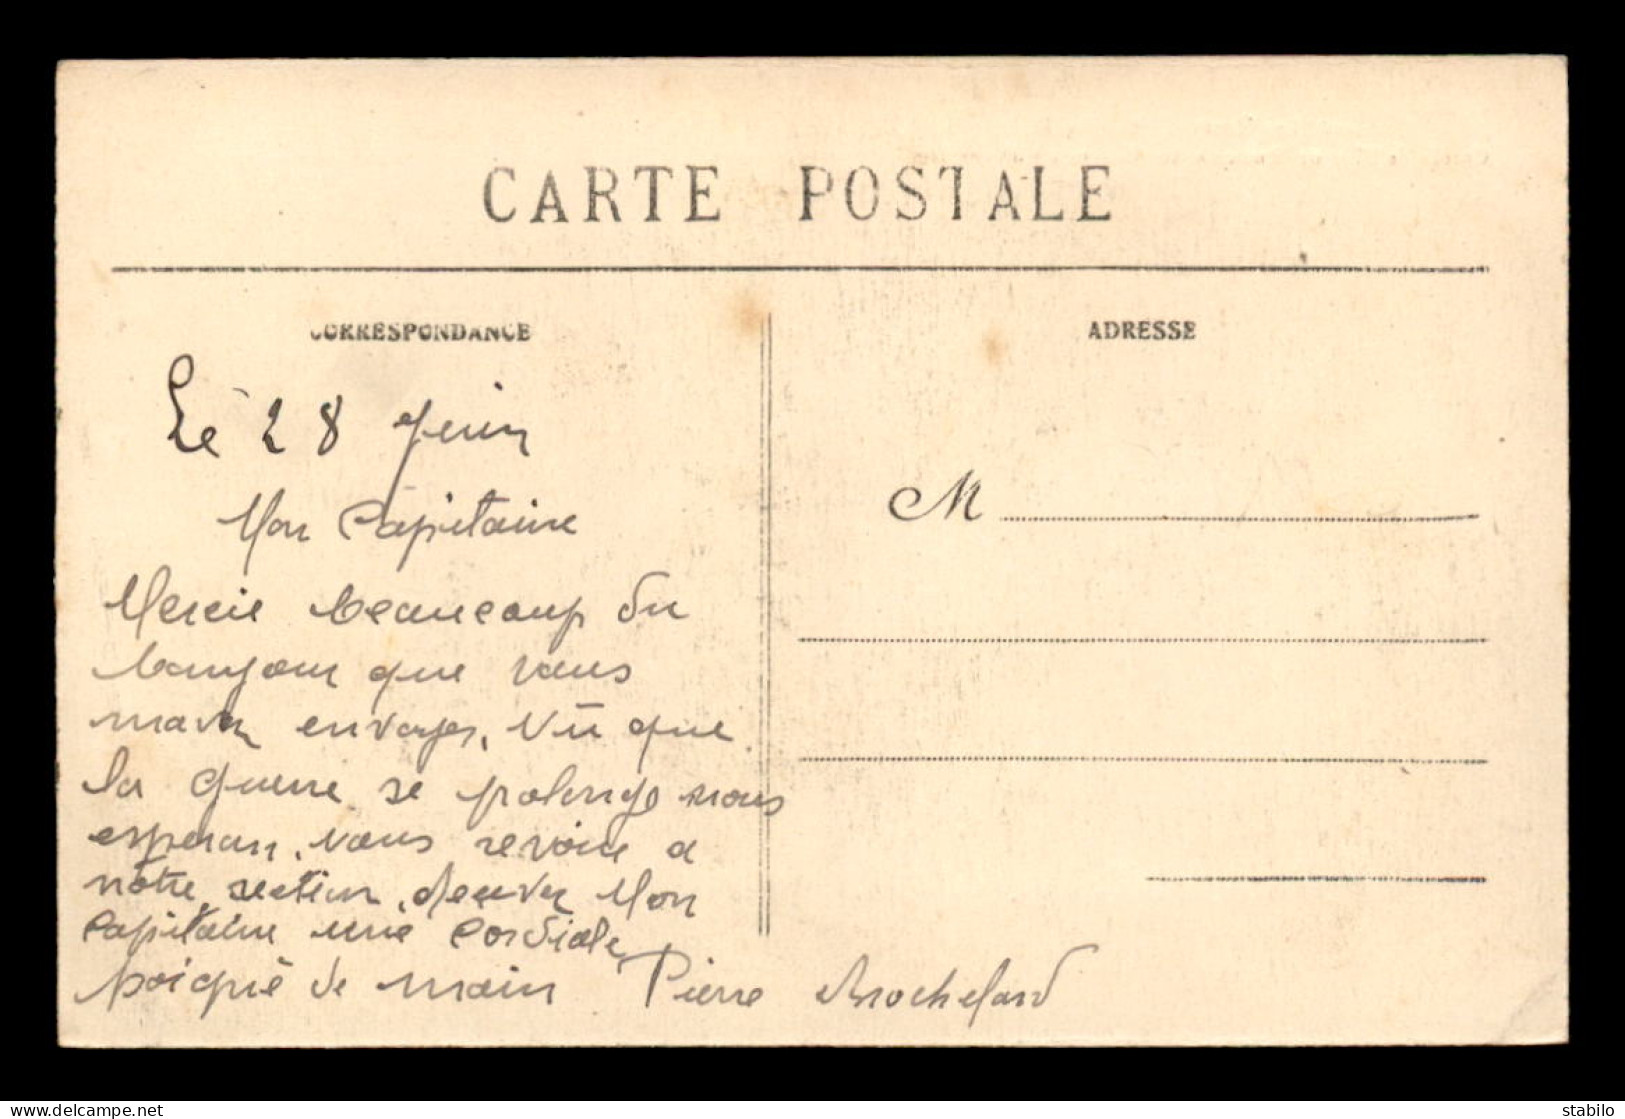 CARTE POSTALE
CORRESPONDANCE
ADRESSE
Le 28 Juin
Mon Capitaine
M
Mercie beaucoup du
bonjour que vous
mavez envoyer, vu que
la guerre se prolonge nous
esperan, vous revoire a
notre secteur, Recever Mon
Capitaine une Cordiale
poigné de main Pierre
delcampe.net
stabilo